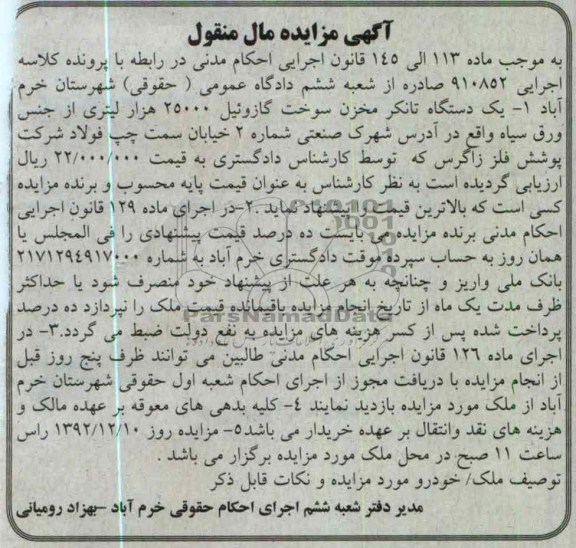 آگهی مزایده مال منقول
به موجب ماده ۱۱۳ الی ۱٤٥ قانون اجرایی احکام مدنی در رابطه با پرونده کلاسه
اجرایی ۹۱۰۸٥۲ صادره از شعبه ششم دادگاه عمومی ( حقوقی) شهرستان خرم
آباد ۱- یک دستگاه تانکر مخزن سوخت گازوئیل ۲٥۰۰۰ هزار لیتری از جنس
ورق سیاه واقع در آدرس شهرک صنعتی شماره ۲ خیابان سمت چپ فولاد شرکت
پوشش فلز زاگرس که توسط کارشناس دادگستری به قیمت ۲۲/۰۰۰/۰۰۰ ریال
ارزیابی گردیده است به نظر کارشناس به عنوان قیمت پایه محسوب و برنده مزایده
کسی است که بالاترین قیمت پیشنهاد نماید .۲-در اجرای ماده ۱۲۹ قانون اجرایی
احکام مدنی برنده مزایده می بایست ده درصد قیمت پیشنهادی را فی المجلس یا
همان روز به حساب سپرده موقت دادگستری خرم آباد به شماره ۲۱۷۱۲۹٤۹۱۷۰۰۰
بانک ملی واریز و چنانچه به هر علت از پیشنهاد خود منصرف شود یا حداکثر
ظرف مدت یک ماه از تاریخ انجام مزایده باقیمانده قیمت ملک را نپردازد ده درصد
پرداخت شده پس از کسر هزینه های مزایده به نفع دولت ضبط می گردد.۳- در
اجرای ماده ۱۲٦ قانون اجرایی احکام مدنی طالبین می توانند ظرف پنج روز قبل
از انجام مزایده با دریافت مجوز از اجرای احکام شعبه اول حقوقی شهرستان خرم
آباد از ملک مورد مزایده بازدید نمایند ٤- کلیه بدهی های معوقه بر عهده مالک و
هزینه های نقد وانتقال بر عهده خریدار می باشد٥- مزایده روز ۱۳۹۲/۱۲/۱۰ راس
ساعت ۱۱ صبح در محل ملک مورد مزایده برگزار می باشد .
توصیف ملک/ خودرو مورد مزایده و نکات قابل ذکر
مدیر دفتر شعبه ششم اجرای احکام حقوقی خرم آباد –بهزاد رومیانی
ParsNamadData